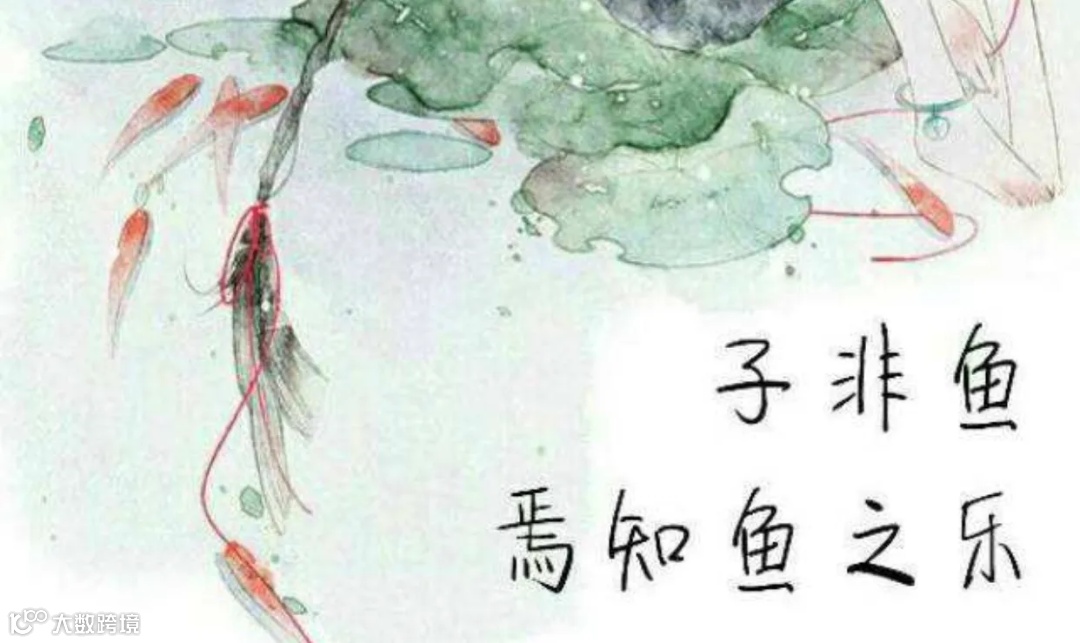 子非鱼
焉知鱼之乐
大数跨境